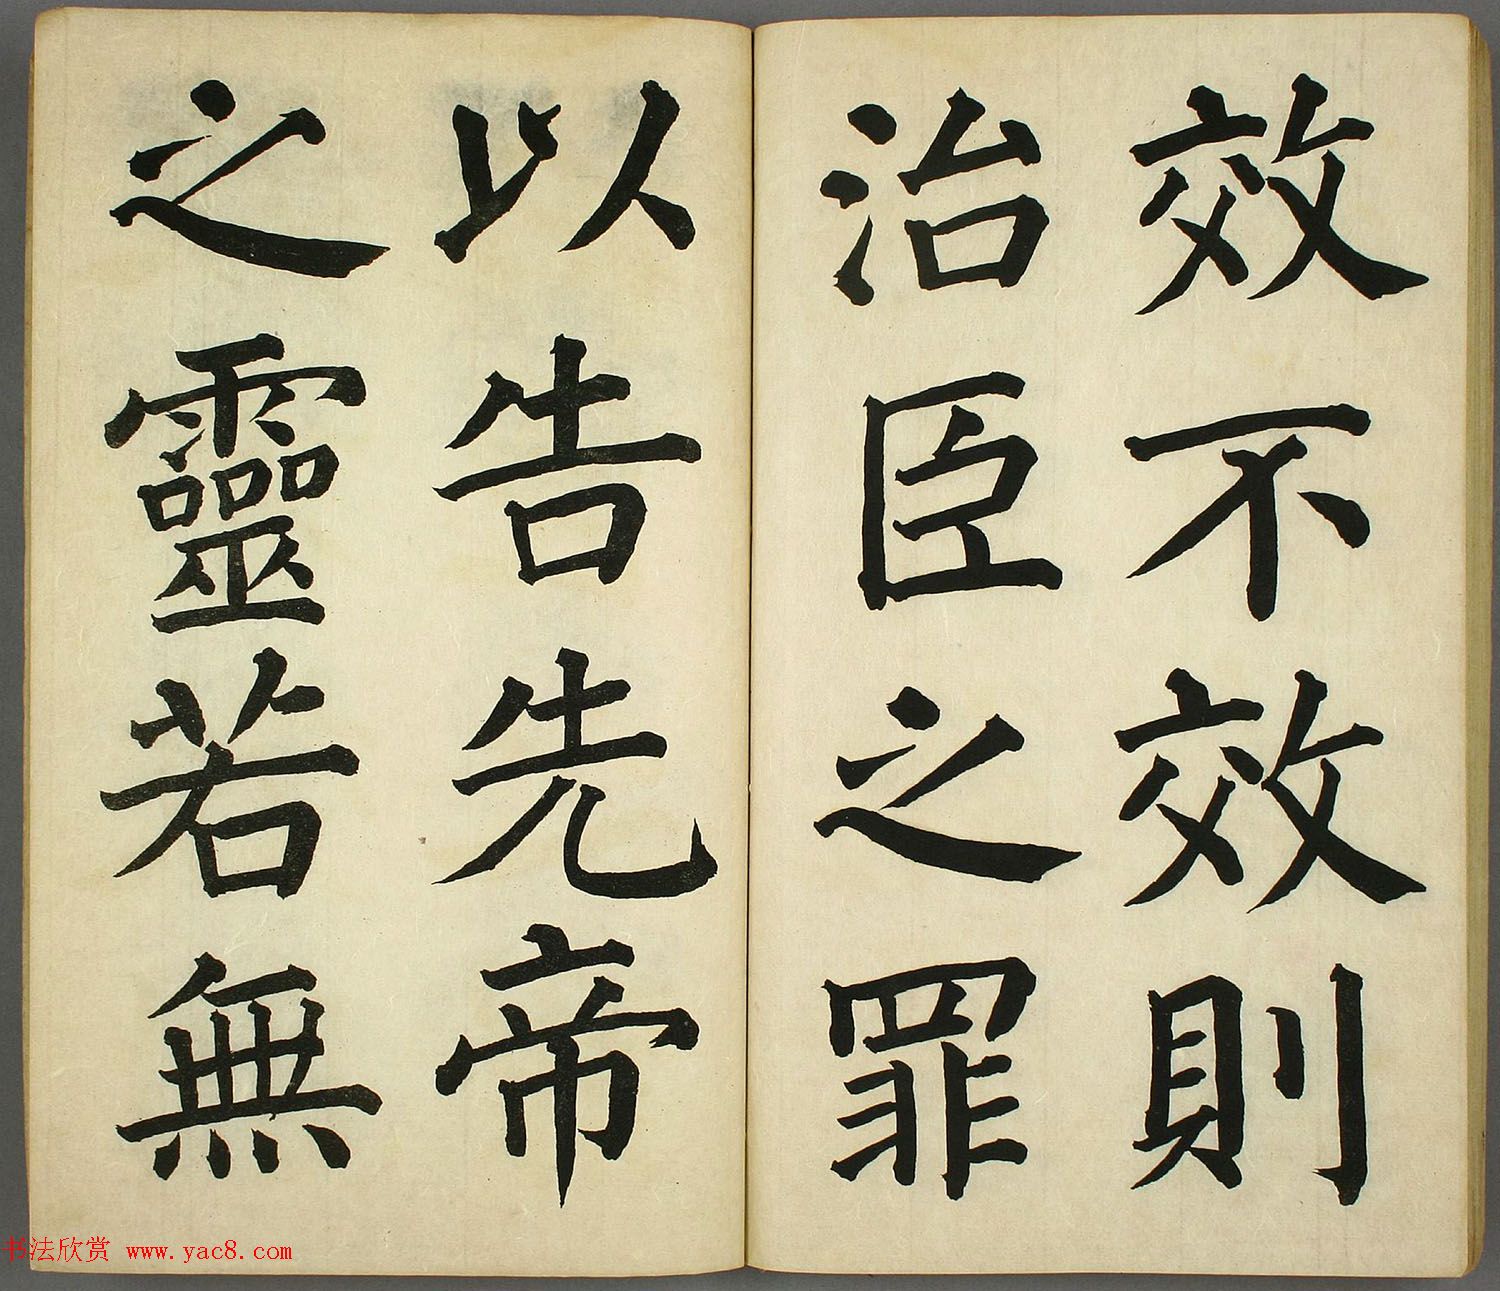 效不效則
治臣之罪
以告先帝
之靈若無
书法欣赏 www.yac8.com